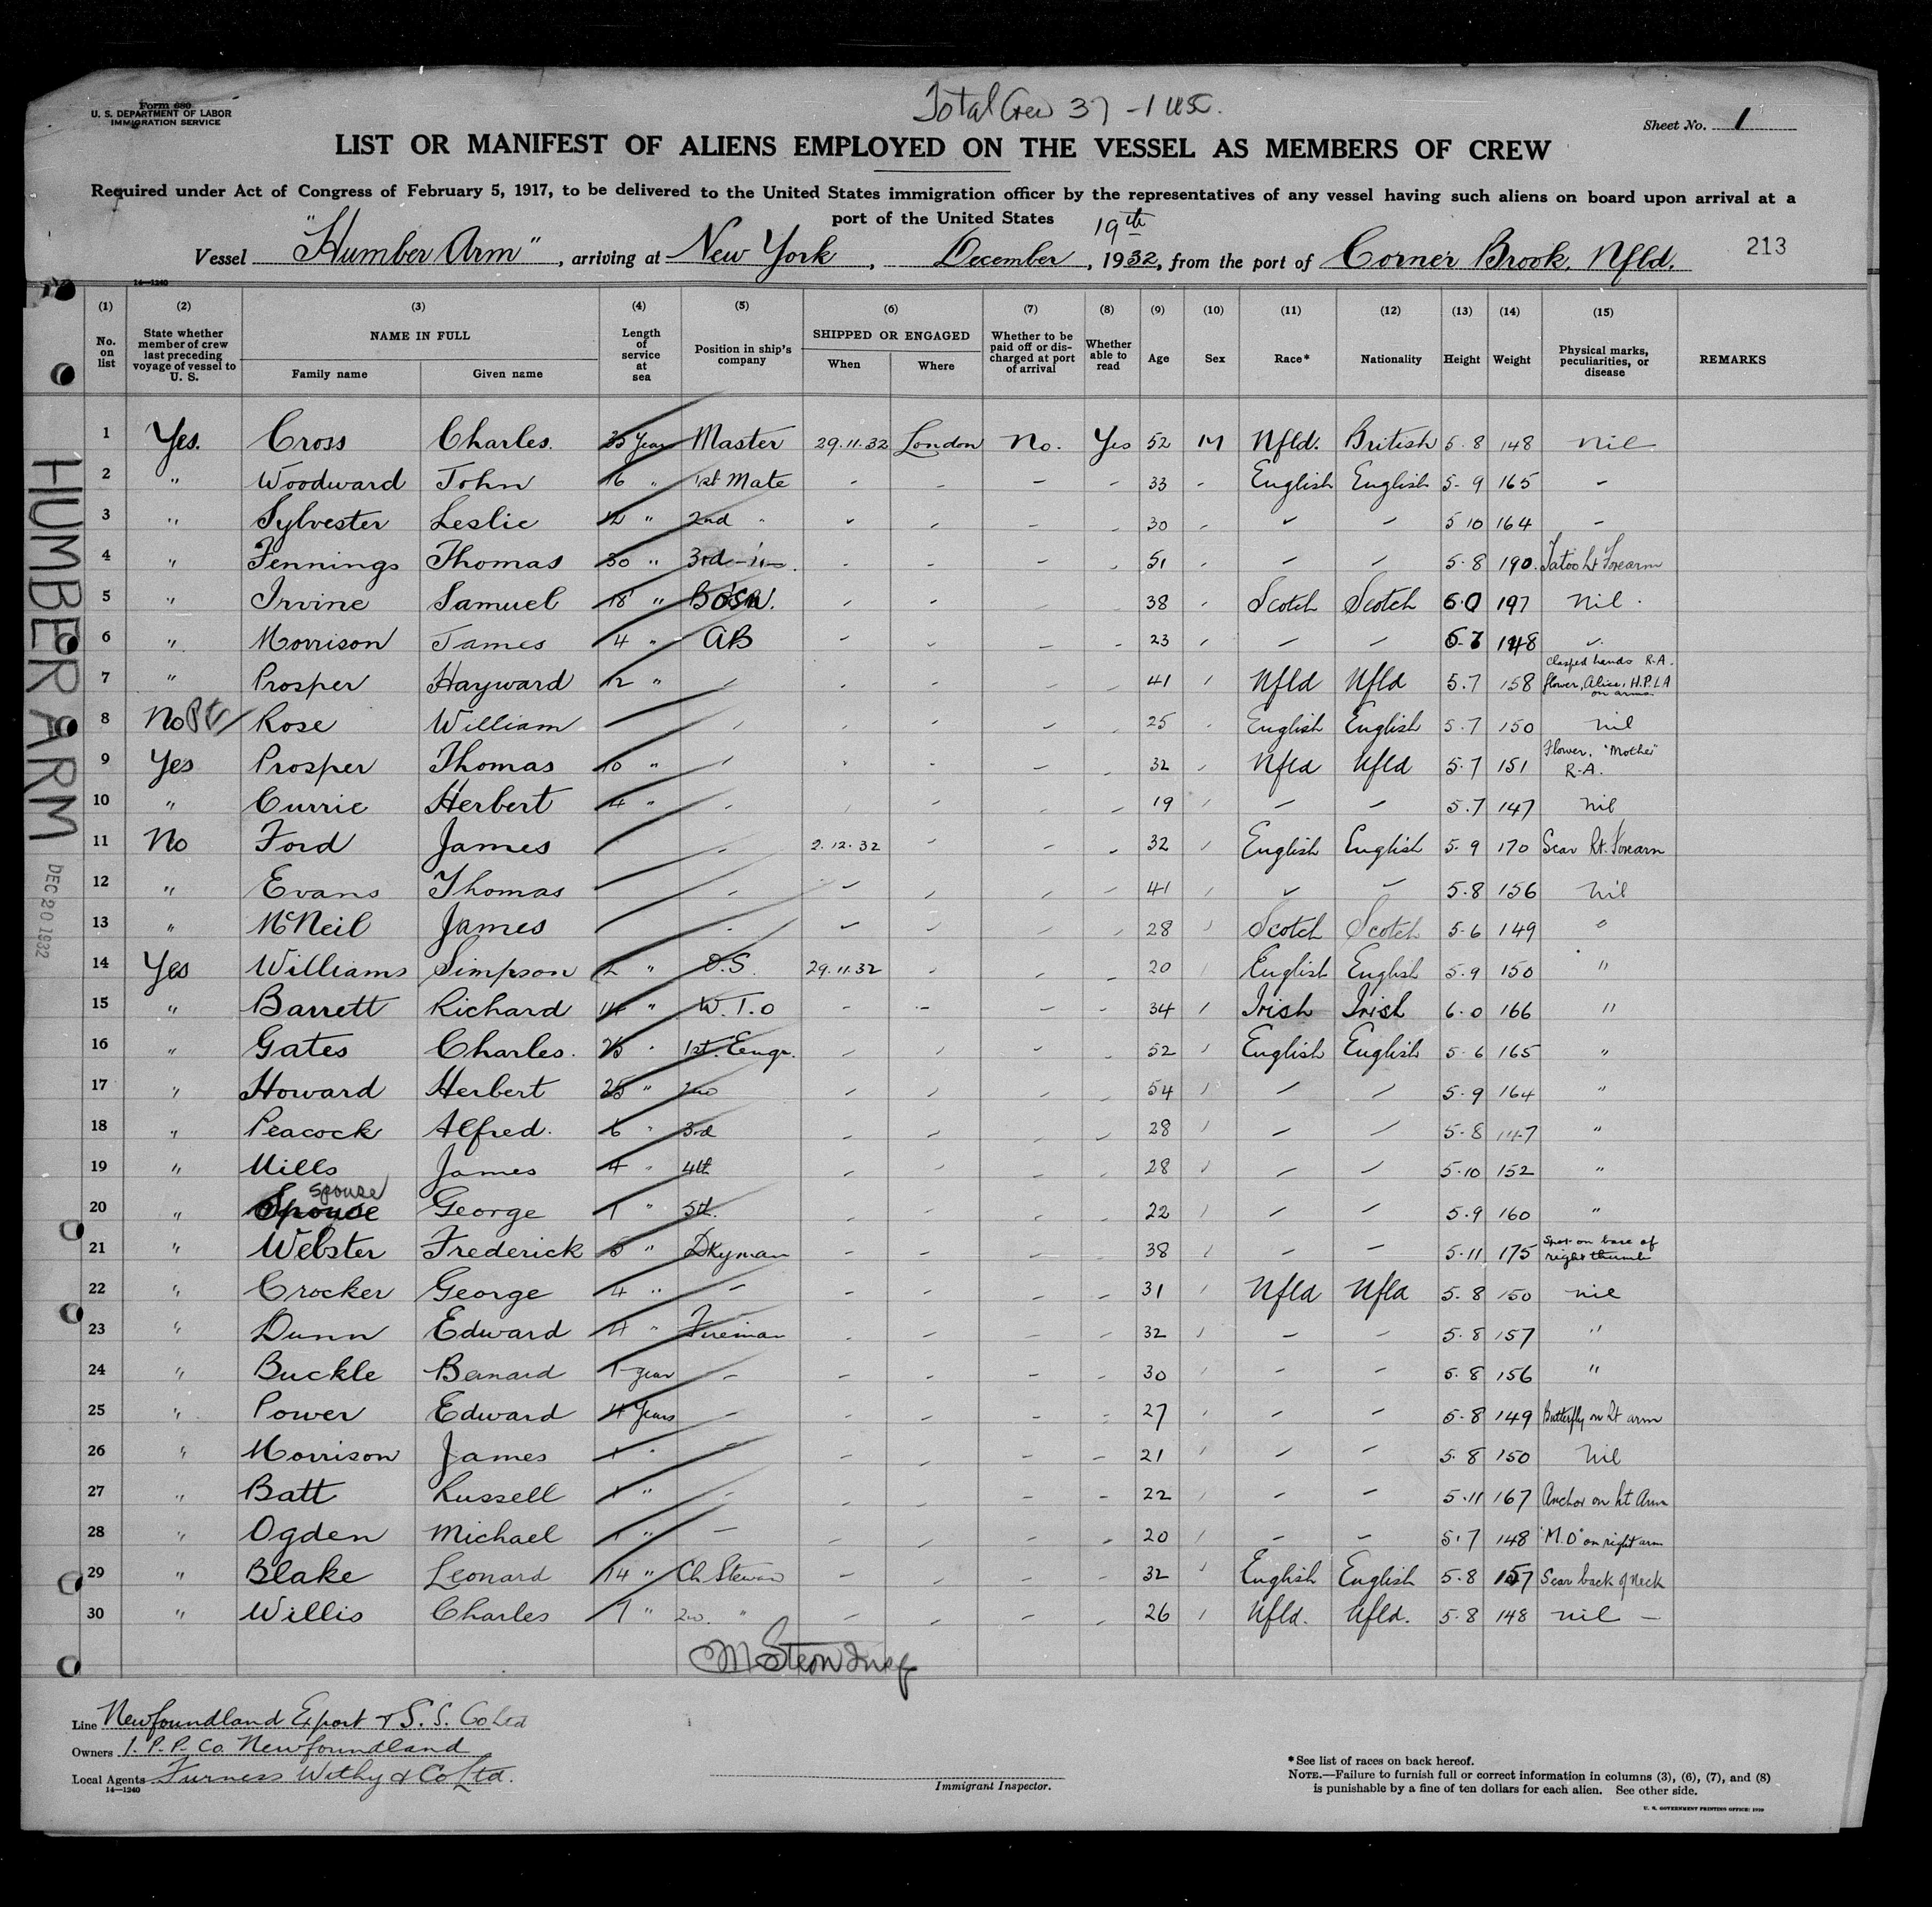 Total Crew 37 - 1 USC.
Form 680
U. S. DEPARTMENT OF LABOR
IMMIGRATION SERVICE
Sheet No. 1
LIST OR MANIFEST OF ALIENS EMPLOYED ON THE VESSEL AS MEMBERS OF CREW
Required under Act of Congress of February 5, 1917, to be delivered to the United States immigration officer by the representatives of any vessel having such aliens on board upon arrival at a
port of the United States
19th
Vessel "Humber Arm", arriving at New York, December, 1932, from the port of Corner Brook, Nfld.
213
14—1240
(1) (2) (3) (4) (5) (6) (7) (8) (9) (10) (11) (12) (13) (14) (15)
No. on list State whether member of crew last preceding voyage of vessel to U. S. NAME IN FULL Family name Given name Length of service at sea Position in ship's company SHIPPED OR ENGAGED When Where Whether to be paid off or discharged at port of arrival Whether able to read Age Sex Race* Nationality Height Weight Physical marks, peculiarities, or disease REMARKS
1 Yes. Cross Charles. 35 Year Master 29.11.32 London No. Yes 52 M Nfld. British 5.8 148 nil
2 " Woodward John 16 " 1st Mate - - - - 33 - English English 5-9 165 -
3 " Sylvester Leslie 12 " 2nd " - - - - 30 - - - 5 10 164 -
4 " Jennings Thomas 30 " 3rd - - - - 51 - - - 5.8 190. Tatoo Lt Forearm
5 " Irvine Samuel 18 " BOSN. - - - - 38 - Scotch Scotch 6.0 197 Nil.
6 " Morrison James 4 " AB - - - - 23 - - - 5-7 148 -
7 " Prosper Hayward 12 " - - - - - 41 - Nfld Nfld 5.7 158 Clasped hands R.A. flower, Alice, H.P. L A on arms.
8 No Rose William - - - - - 25 - English English 5.7 150 nil
9 Yes Prosper Thomas 10 " - - - - - 32 - Nfld Nfld 5.7 151 Flower, "Mother" R-A.
10 " Currie Herbert 4 " - - - - - 19 - - - 5.7 147 nil
11 No Ford James - 2.12.32 - - - 32 - English English 5.9 170 Scar Rt. Forearm
12 " Evans Thomas - - - - - 41 - - - 5.8 156 nil
13 " McNeil James - - - - - 28 - Scotch Scotch 5.6 149 "
14 Yes Williams Simpson 2 " O.S. 29.11.32 - - - 20 - English English 5.9 150 "
15 " Barrett Richard 14 " W.T.O - - - - 34 - Irish Irish 6.0 166 "
16 " Gates Charles. 25 " 1st. Eengr. - - - - 52 - English English 5.6 165 "
17 " Howard Herbert 25 " 2nd - - - - 54 - - - 5.9 164 "
18 " Peacock Alfred. 6 " 3rd - - - - 28 - - - 5.8 147 "
19 " Mills James 4 " 4th - - - - 28 - - - 5.10 152 "
20 " Spouse Spouse George 1 " 5th. - - - - 22 - - - 5.9 160 "
21 " Webster Frederick 5 " Dkyman - - - - 38 - - - 5.11 175 Spot on base of right thumb
22 " Crocker George 4 " - - - - - 31 - Nfld Nfld 5.8 150 nil
23 " Dunn Edward 4 " Fireman - - - - 32 - - - 5.8 157 "
24 " Buckle Benard 1 year - - - - - 30 - - - 5.8 156 "
25 " Power Edward 4 Years - - - - - 27 - - - 5.8 149 Butterfly on Rt arm
26 " Morrison James 1 " - - - - - 21 - - - 5.8 150 Nil
27 " Batt Russell 1 " - - - - - 22 - - - 5.11 167 Anchor on Rt Arm
28 " Ogden Michael 1 " - - - - - 20 - - - 5.7 148 "M.O" on right arm
29 " Blake Leonard 14 " Ch Steward - - - - 32 - English English 5.8 157 Scar back of Neck
30 " Willis Charles 7 " 2nd. " - - - - 26 - Nfld. Nfld. 5.8 148 nil -
HUMBER ARM
DEC 20 1932
Line Newfoundland Export & S. S. Co Ltd
Owners I. P. P. Co. Newfoundland
Local Agents Furness Withy & Co Ltd.
14—1240
Immigrant Inspector.
*See list of races on back hereof.
NOTE.—Failure to furnish full or correct information in columns (3), (6), (7), and (8)
is punishable by a fine of ten dollars for each alien. See other side.
U. S. GOVERNMENT PRINTING OFFICE: 1930